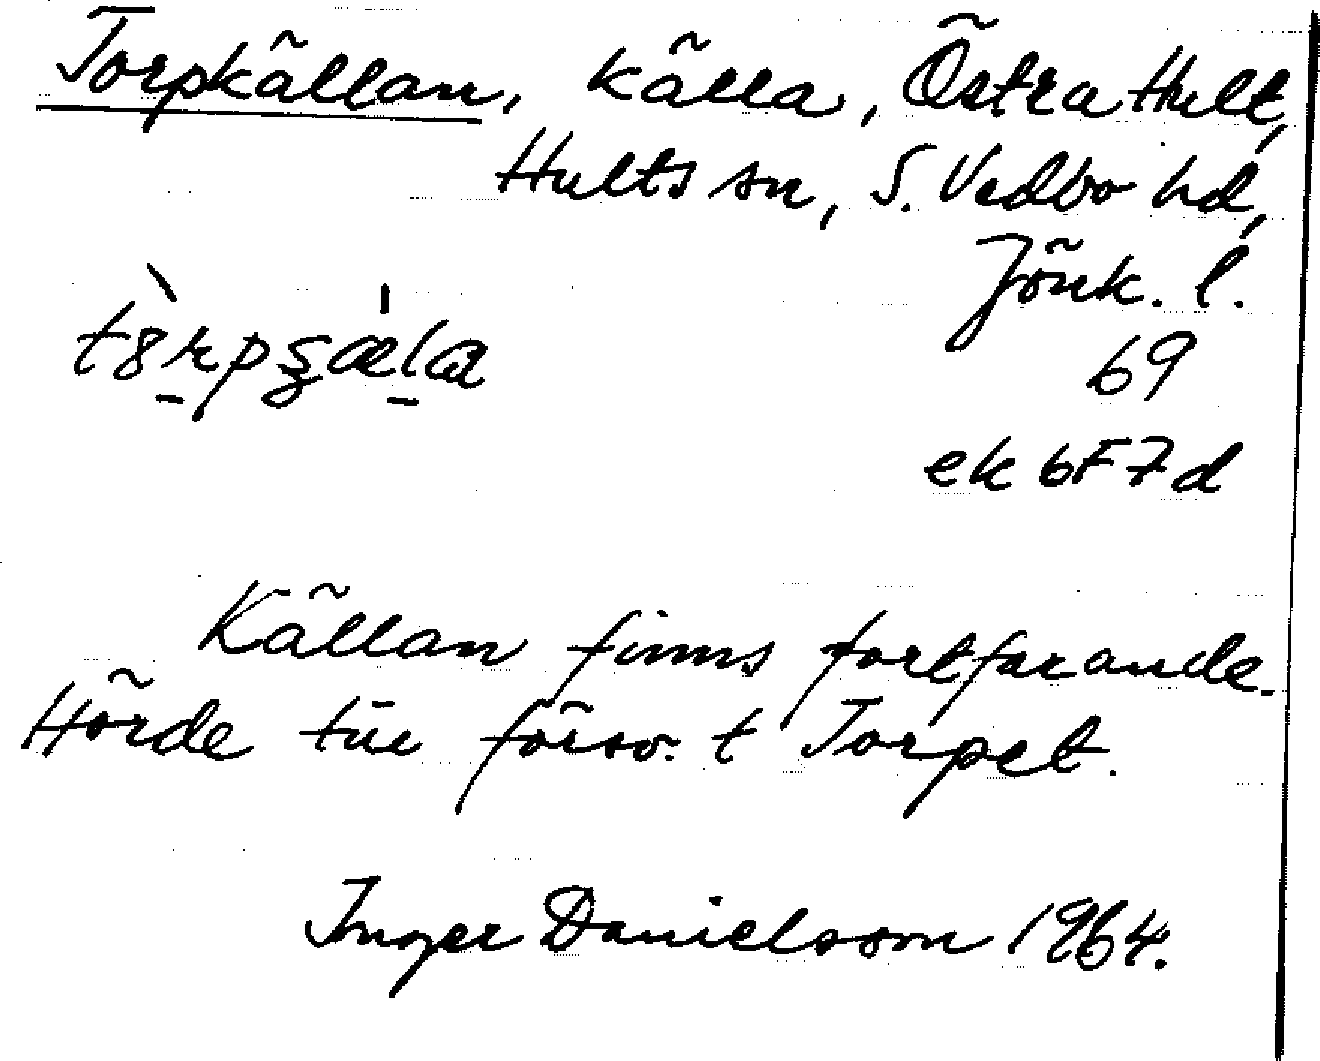 Torpkällan, källa, Östra Hult,
Hults sn, S. Vedbo hd,
Jönk. l.
69
ek 6F7d
Källan finns fortfarande.
Hörde till försv. t Torpet.
Inger Danielsson 1964.